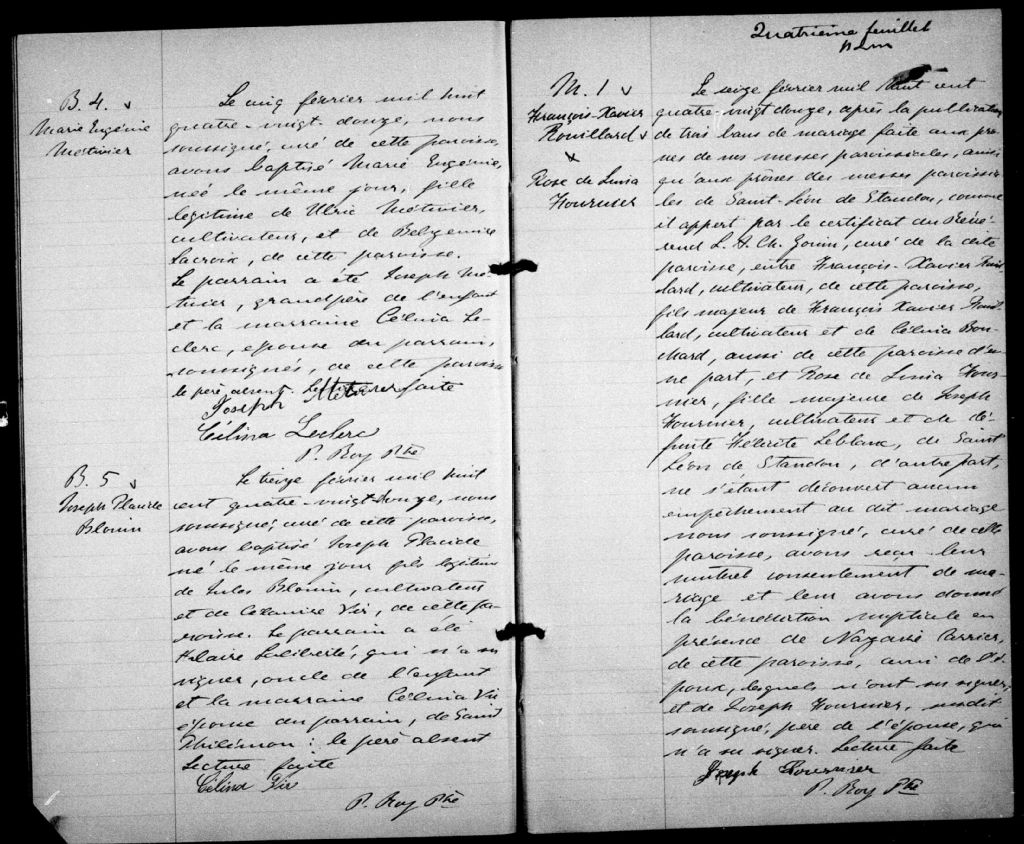 B. 4.
Marie Eugénie
Métivier
Le cinq février mil huit
quatre-vingt-douze, nous
soussigné, curé de cette paroisse,
avons baptisé Marie Eugénie,
née le même jour, fille
légitime de Ulric Métivier,
cultivateur, et de
Lacroix, de cette paroisse.
Le parrain a été Joseph Mé-
tivier, grandpère de l'enfant
et la marraine Célina Le-
clerc, épouse du parrain,
soussignés, de cette paroisse
le père absent. Lecture faite
Joseph Metivier
Célina Leclerc
P. Roy Ptre
B. 5
Joseph Placide
Blouin
Le treize février mil huit
cent quatre-vingt-douze, nous
soussigné, curé de cette paroisse,
avons baptisé Joseph Placide
né le même jour fils légitime
de Jules Blouin, cultivateur
et de, de cette pa-
roisse. Le parrain a été
Hilaire Laliberté, qui n'a su
signer, oncle de l'enfant
et la marraine Célina
épouse du parrain, de Saint
Philémon: le père absent
Lecture faite
Célina
P. Roy Ptre
Quatrième feuillet
M. 1
François-Xavier
Rouillard
x
Rose de Lima
Fournier
Le seize février mil huit cent
quatre-vingt douze, après la publication
de trois bans de mariage faite aux prô-
nes de nos messes paroissiales, ainsi
qu'aux prônes des messes paroissia-
les de Saint-Léon de Standon, comme
il appert par le certificat du Révé-
rend L. A. Ch. Gouin, curé de la dite
paroisse, entre François-Xavier Rouil-
lard, cultivateur, de cette paroisse,
fils majeur de François Xavier Rouil-
lard, cultivateur et de Célina Bou-
chard, aussi de cette paroisse d'u-
ne part, et Rose de Lima Four-
nier, fille majeure de Joseph
Fournier, cultivateur et de dé-
funte Félicité Leblanc, de Saint
Léon de Standon, d'autre part,
ne s'étant découvert aucun
empêchement au dit mariage
nous soussigné, curé de cette
paroisse, avons reçu leur
mutuel consentement de ma-
riage et leur avons donné
la bénédiction nuptiale en
présence de Nazaire Carrier,
de cette paroisse, ami de l'é-
poux, lesquels n'ont su signer,
et de Joseph Fournier, susdit
soussigné, père de l'épouse, qui
n'a su signer. Lecture faite
Joseph Fournier
P. Roy Ptre